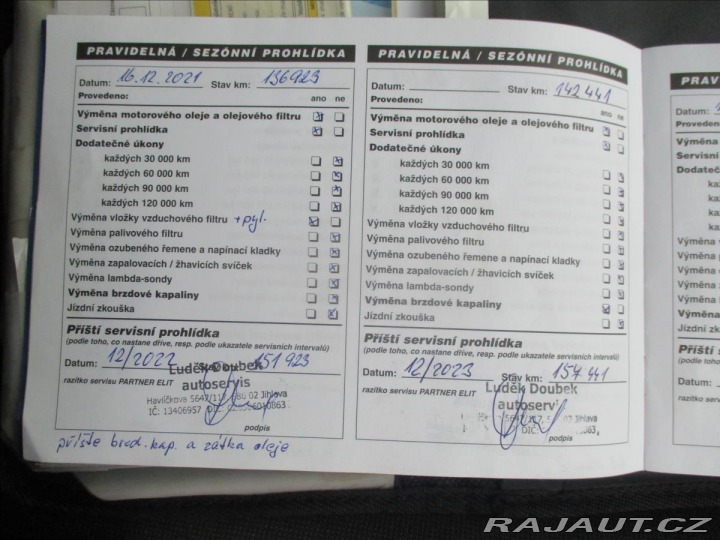 PRAVIDELNÁ / SEZÓNNÍ PROHLÍDKA
Datum: 16.12.2021 Stav km: 136923
Provedeno: ano ne
Výměna motorového oleje a olejového filtru
Servisní prohlídka
Dodatečné úkony
každých 30 000 km
každých 60 000 km
každých 90 000 km
každých 120 000 km
Výměna vložky vzduchového filtru + pyl.
Výměna palivového filtru
Výměna ozubeného řemene a napínací kladky
Výměna zapalovacích / žhavicích svíček
Výměna lambda-sondy
Výměna brzdové kapaliny
Jízdní zkouška
Příští servisní prohlídka
(podle toho, co nastane dříve, resp. podle ukazatele servisních intervalů)
Datum: 12/2022 151 923
Luděk Doubek
razítko servisu PARTNER ELIT autoservis
Havlíčkova 5647/117, 586 02 Jihlava
IČ: 13406957
podpis
příště brzd. kap. a zátka oleje
PRAVIDELNÁ / SEZÓNNÍ PROHLÍDKA
Datum: Stav km: 142 441
Provedeno: ano ne
Výměna motorového oleje a olejového filtru
Servisní prohlídka
Dodatečné úkony
každých 30 000 km
každých 60 000 km
každých 90 000 km
každých 120 000 km
Výměna vložky vzduchového filtru
Výměna palivového filtru
Výměna ozubeného řemene a napínací kladky
Výměna zapalovacích / žhavicích svíček
Výměna lambda-sondy
Výměna brzdové kapaliny
Jízdní zkouška
Příští servisní prohlídka
(podle toho, co nastane dříve, resp. podle ukazatele servisních intervalů)
Datum: 12/2023 Stav km: 157 441
razítko servisu PARTNER ELIT Luděk Doubek
autoservi
Jihlava
DIČ:
podpis
PRAVI
Datum:
Provedeno
Výměna
Servisní
Dodateč
Výměna
Výměna
Výměna
Výměna
Výměna
Výměna
Jízdní
Příští s
(podle toho
Datum:
razítko
RAJAUT.CZ